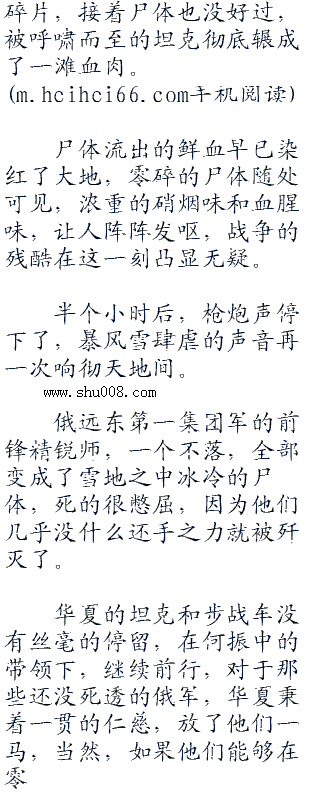 碎片，接着尸体也没好过，
被呼啸而至的坦克彻底辗成
了一滩血肉。
(m.hcihci66.com手机阅读)
尸体流出的鲜血早已染
红了大地，零碎的尸体随处
可见，浓重的硝烟味和血腥
味，让人阵阵发呕，战争的
残酷在这一刻凸显无疑。
半个小时后，枪炮声停
下了，暴风雪肆虐的声音再
一次响彻天地间。
www.shu008.com
俄远东第一集团军的前
锋精锐师，一个不落，全部
变成了雪地之中冰冷的尸
体，死的很憋屈，因为他们
几乎没什么还手之力就被歼
灭了。
华夏的坦克和步战车没
有丝毫的停留，在何振中的
带领下，继续前行，对于那
些还没死透的俄军，华夏秉
着一贯的仁慈，放了他们一
马，当然，如果他们能够在
零